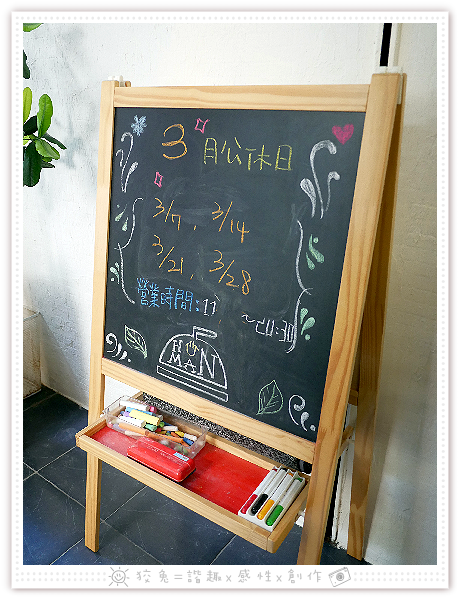 3月公休日
3/7、3/14
3/21、3/28
營業時間:11 ~20:30
HOW
MAN
狡兔=諧趣x感性x創作